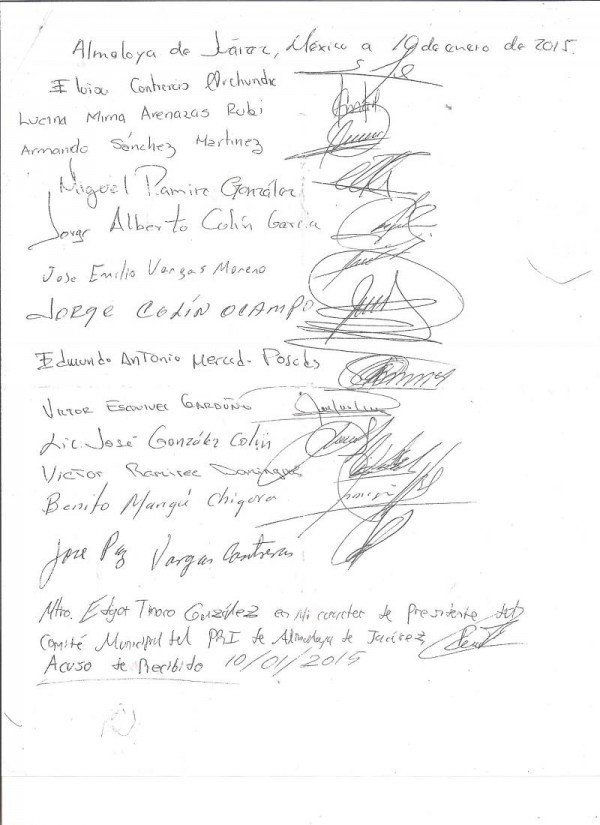 Almoloya de Júarez, México a 10 de enero de 2015.
Eloisa Contreras Archundia
Lucina Mirna Arenazas Rubi
Armando Sánchez Martinez
Miguel Ramirez González
Jorge Alberto Colín Garcia
Jose Emilio Vargas Moreno
JORGE COLÍN OCAMPO
Edmundo Antonio Merced Posadas
Victor Esquivel Garduño
Lic. José González Colín
Victor Ramirez Dominguez
Benito Chigora
Jose Paz Vargas Contreras
Mtro. Edgar Tinoco González en mi caracter de presidente del
Comité Municipal del PRI de Almoloya de Juárez
Acuso de Recibido 10/01/2015